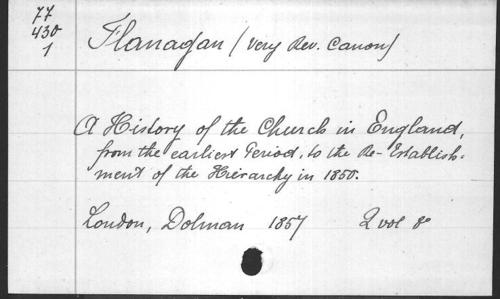 77
430
1
Flanagan (Very Rev. Canon)
A History of the Church in England,
from the earliest Period, to the Re-Establish-
ment of the Hierarchy in 1850.
London, Dolman 1857 2 vol 8º